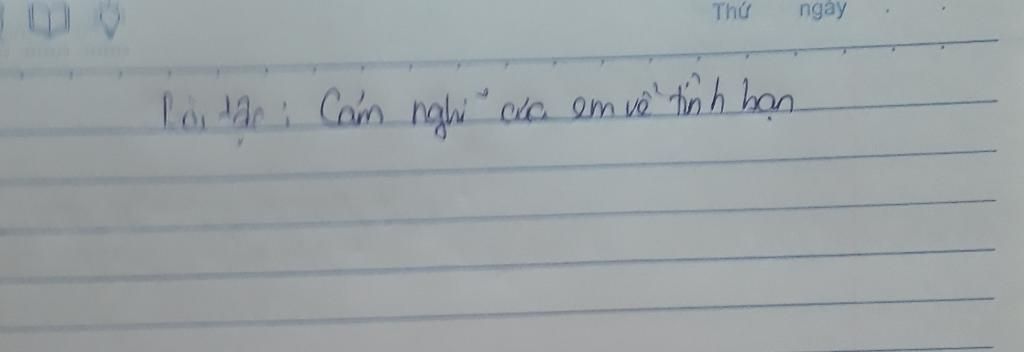 Thứ ngày
: Cảm nghĩ của em về tình bạn